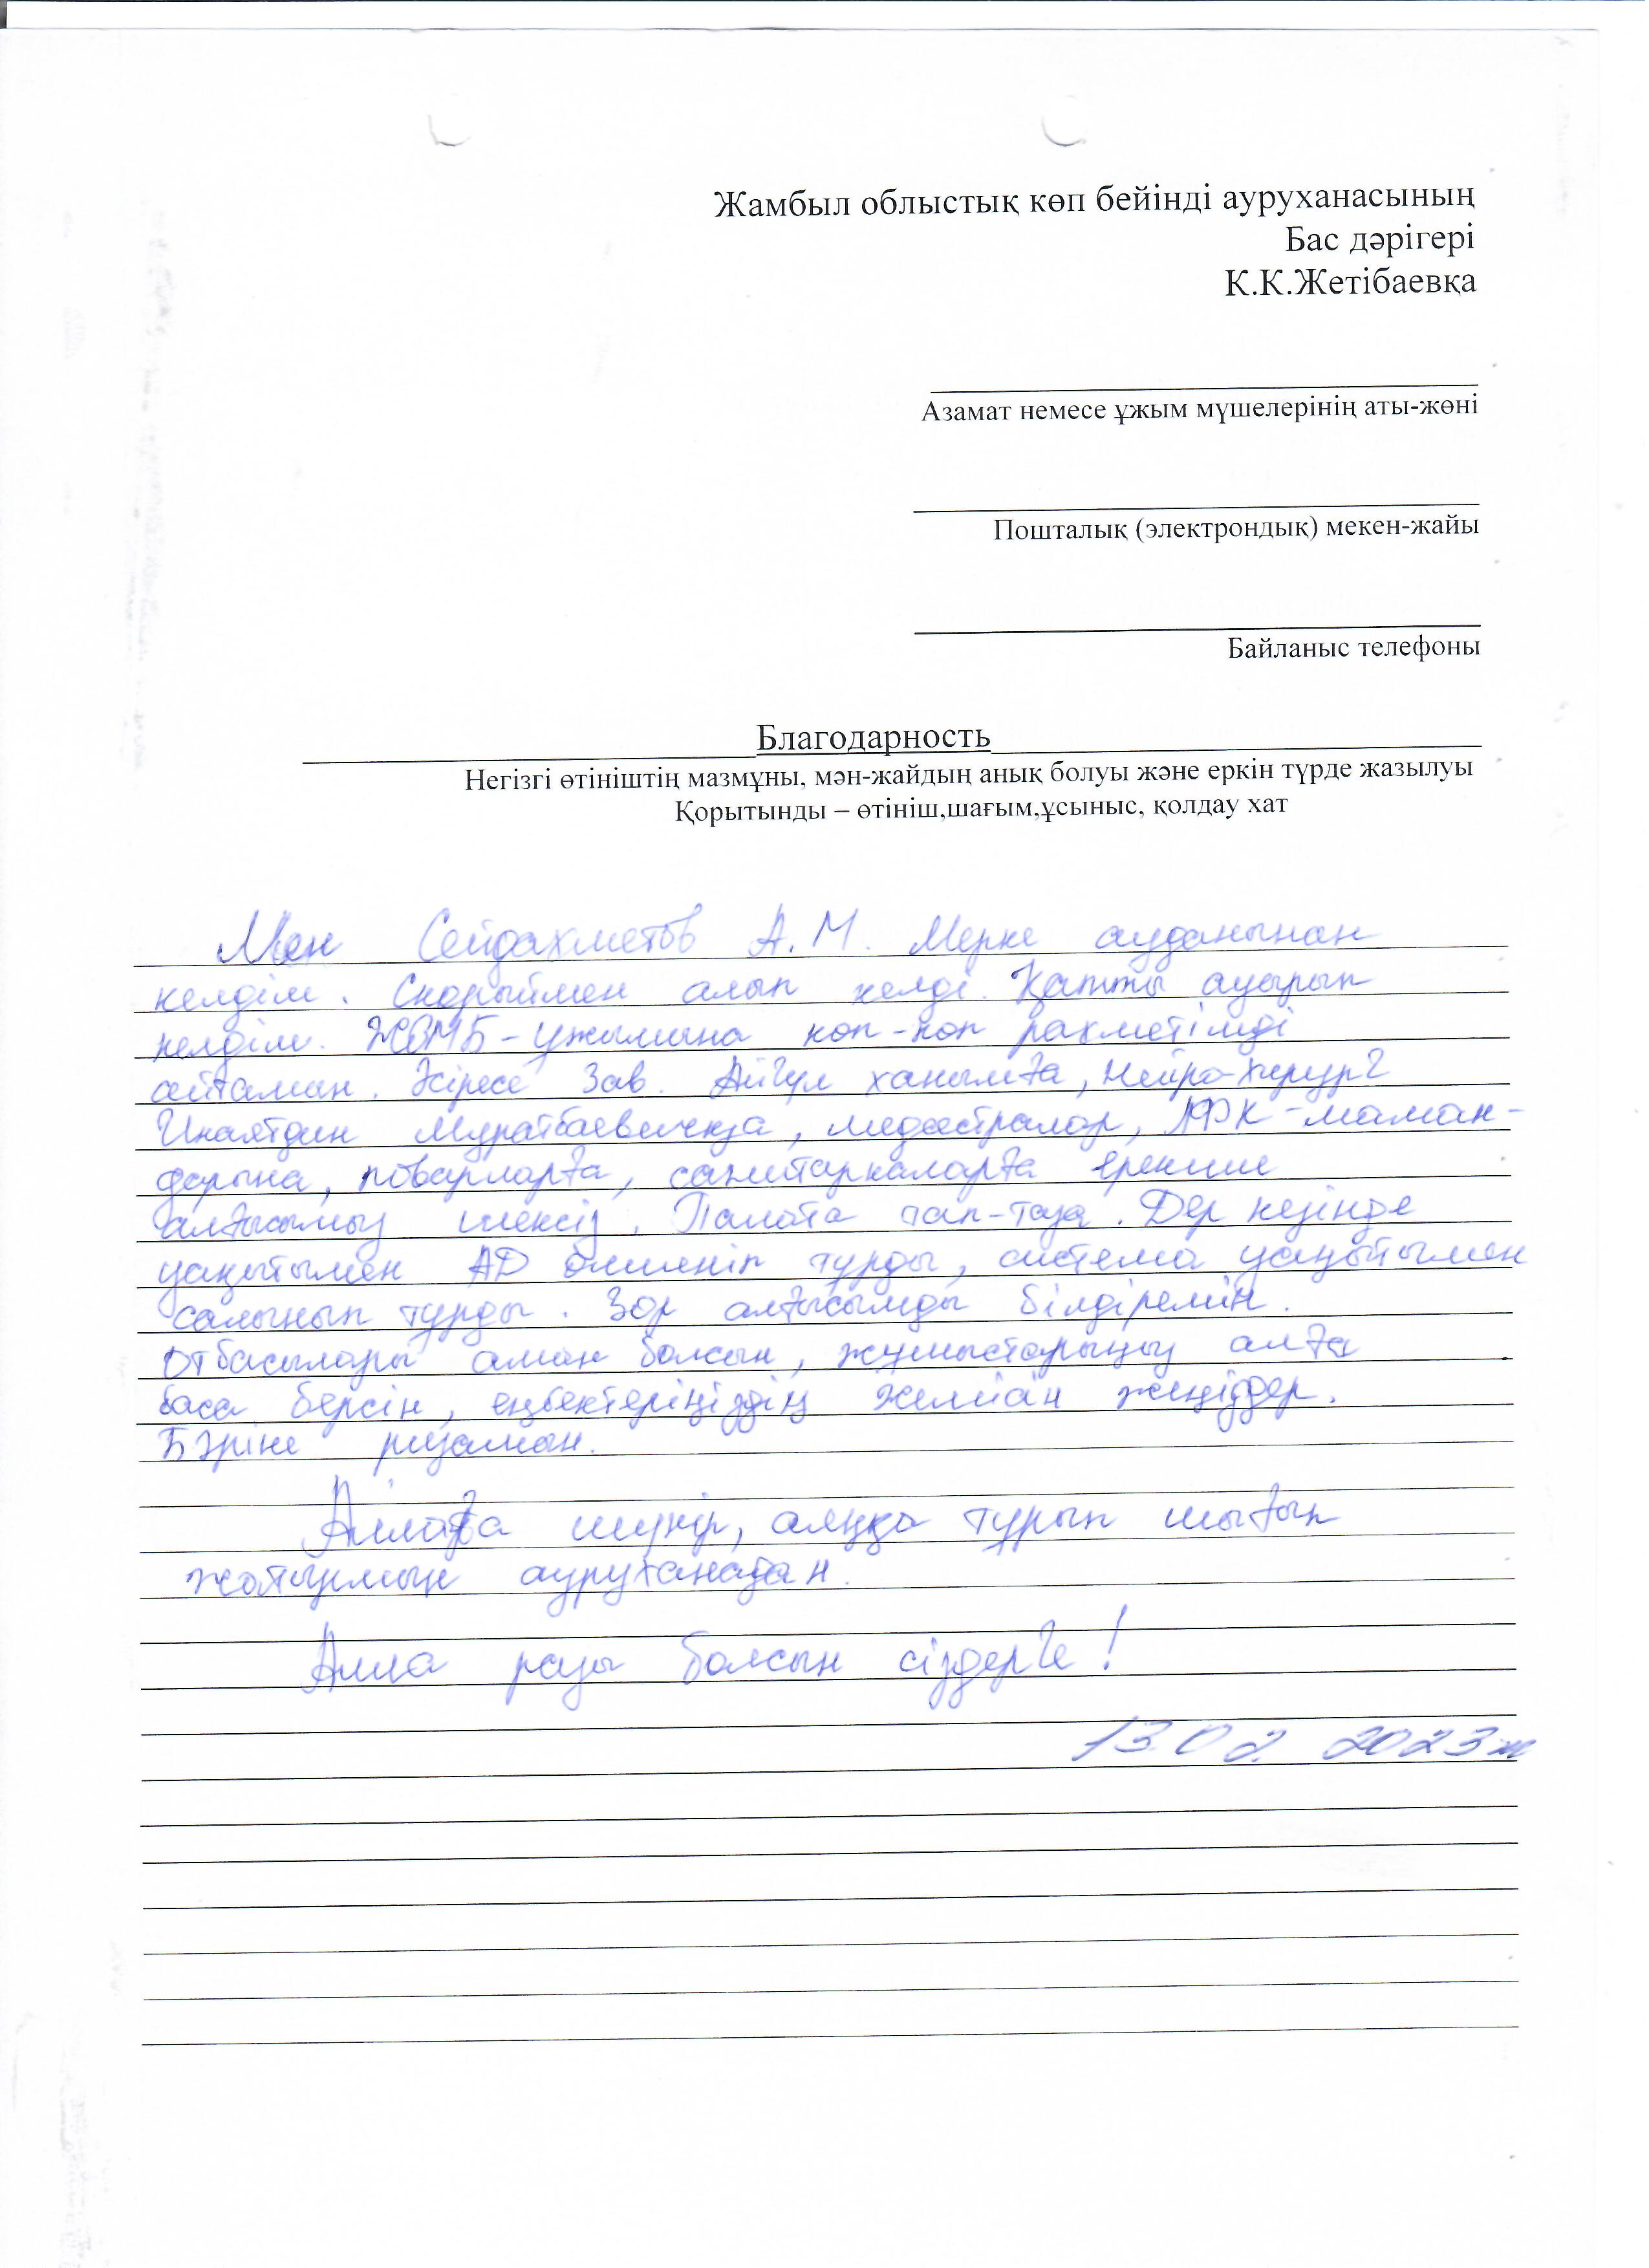 Жамбыл облыстық көп бейінді ауруханасының
Бас дәрігері
К.К.Жетібаевқа
Азамат немесе ұжым мүшелерінің аты-жөні
Пошталық (электрондық) мекен-жайы
Байланыс телефоны
Благодарность
Негізгі өтініштің мазмұны, мән-жайдың анық болуы және еркін түрде жазылуы
Қорытынды – өтініш,шағым,ұсыныс, қолдау хат
Мен Сейдахметов А.М. Мерке ауданынан
келдім. Скорыймен алып келді. Қатты ауырып
келдім. ЖОМБ-ұжымына көп-көп рахметімді
айтаман. Әсіресе Зав. Айгүл ханымға, Нейро-хирург
Инаятдин Муратбаевичқа, медсестралар, ЛФК-маман-
дарына, поварларға, санитаркаларға ерекше
алғысымыз шексіз. Палата тап-таза. Дер кезінде
уақытымен АД өлшеніп тұрды, система уақытымен
салынып тұрды. Зор алғысымды білдіремін.
Отбасылары аман болсын, жұмыстарыңыз алға
баса берсін, еңбектеріңіздің жеңіздер.
Бәріне ризамын.
Аллаға шүкір, аяққа тұрып шығып
жатырмын ауруханадан.
Алла разы болсын сіздерге!
13.02. 2023ж